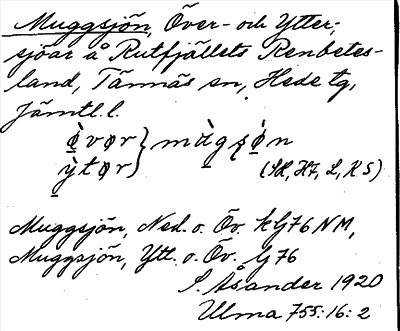 Muggsjön, Över- och Ytter-,
sjöar å Rutfjällets Renbetes-
land, Tännäs sn, Hede tg,
Jämtl. l.
ø̀vər } mùgʂø̀n
ỳtər } (SH, HF, L, KS)
Muggsjön, Ned. o. Öv. kG76 NM,
Muggsjön, Ytt. o. Öv. G76
S. Åsander 1920
Ulma 755:16:2